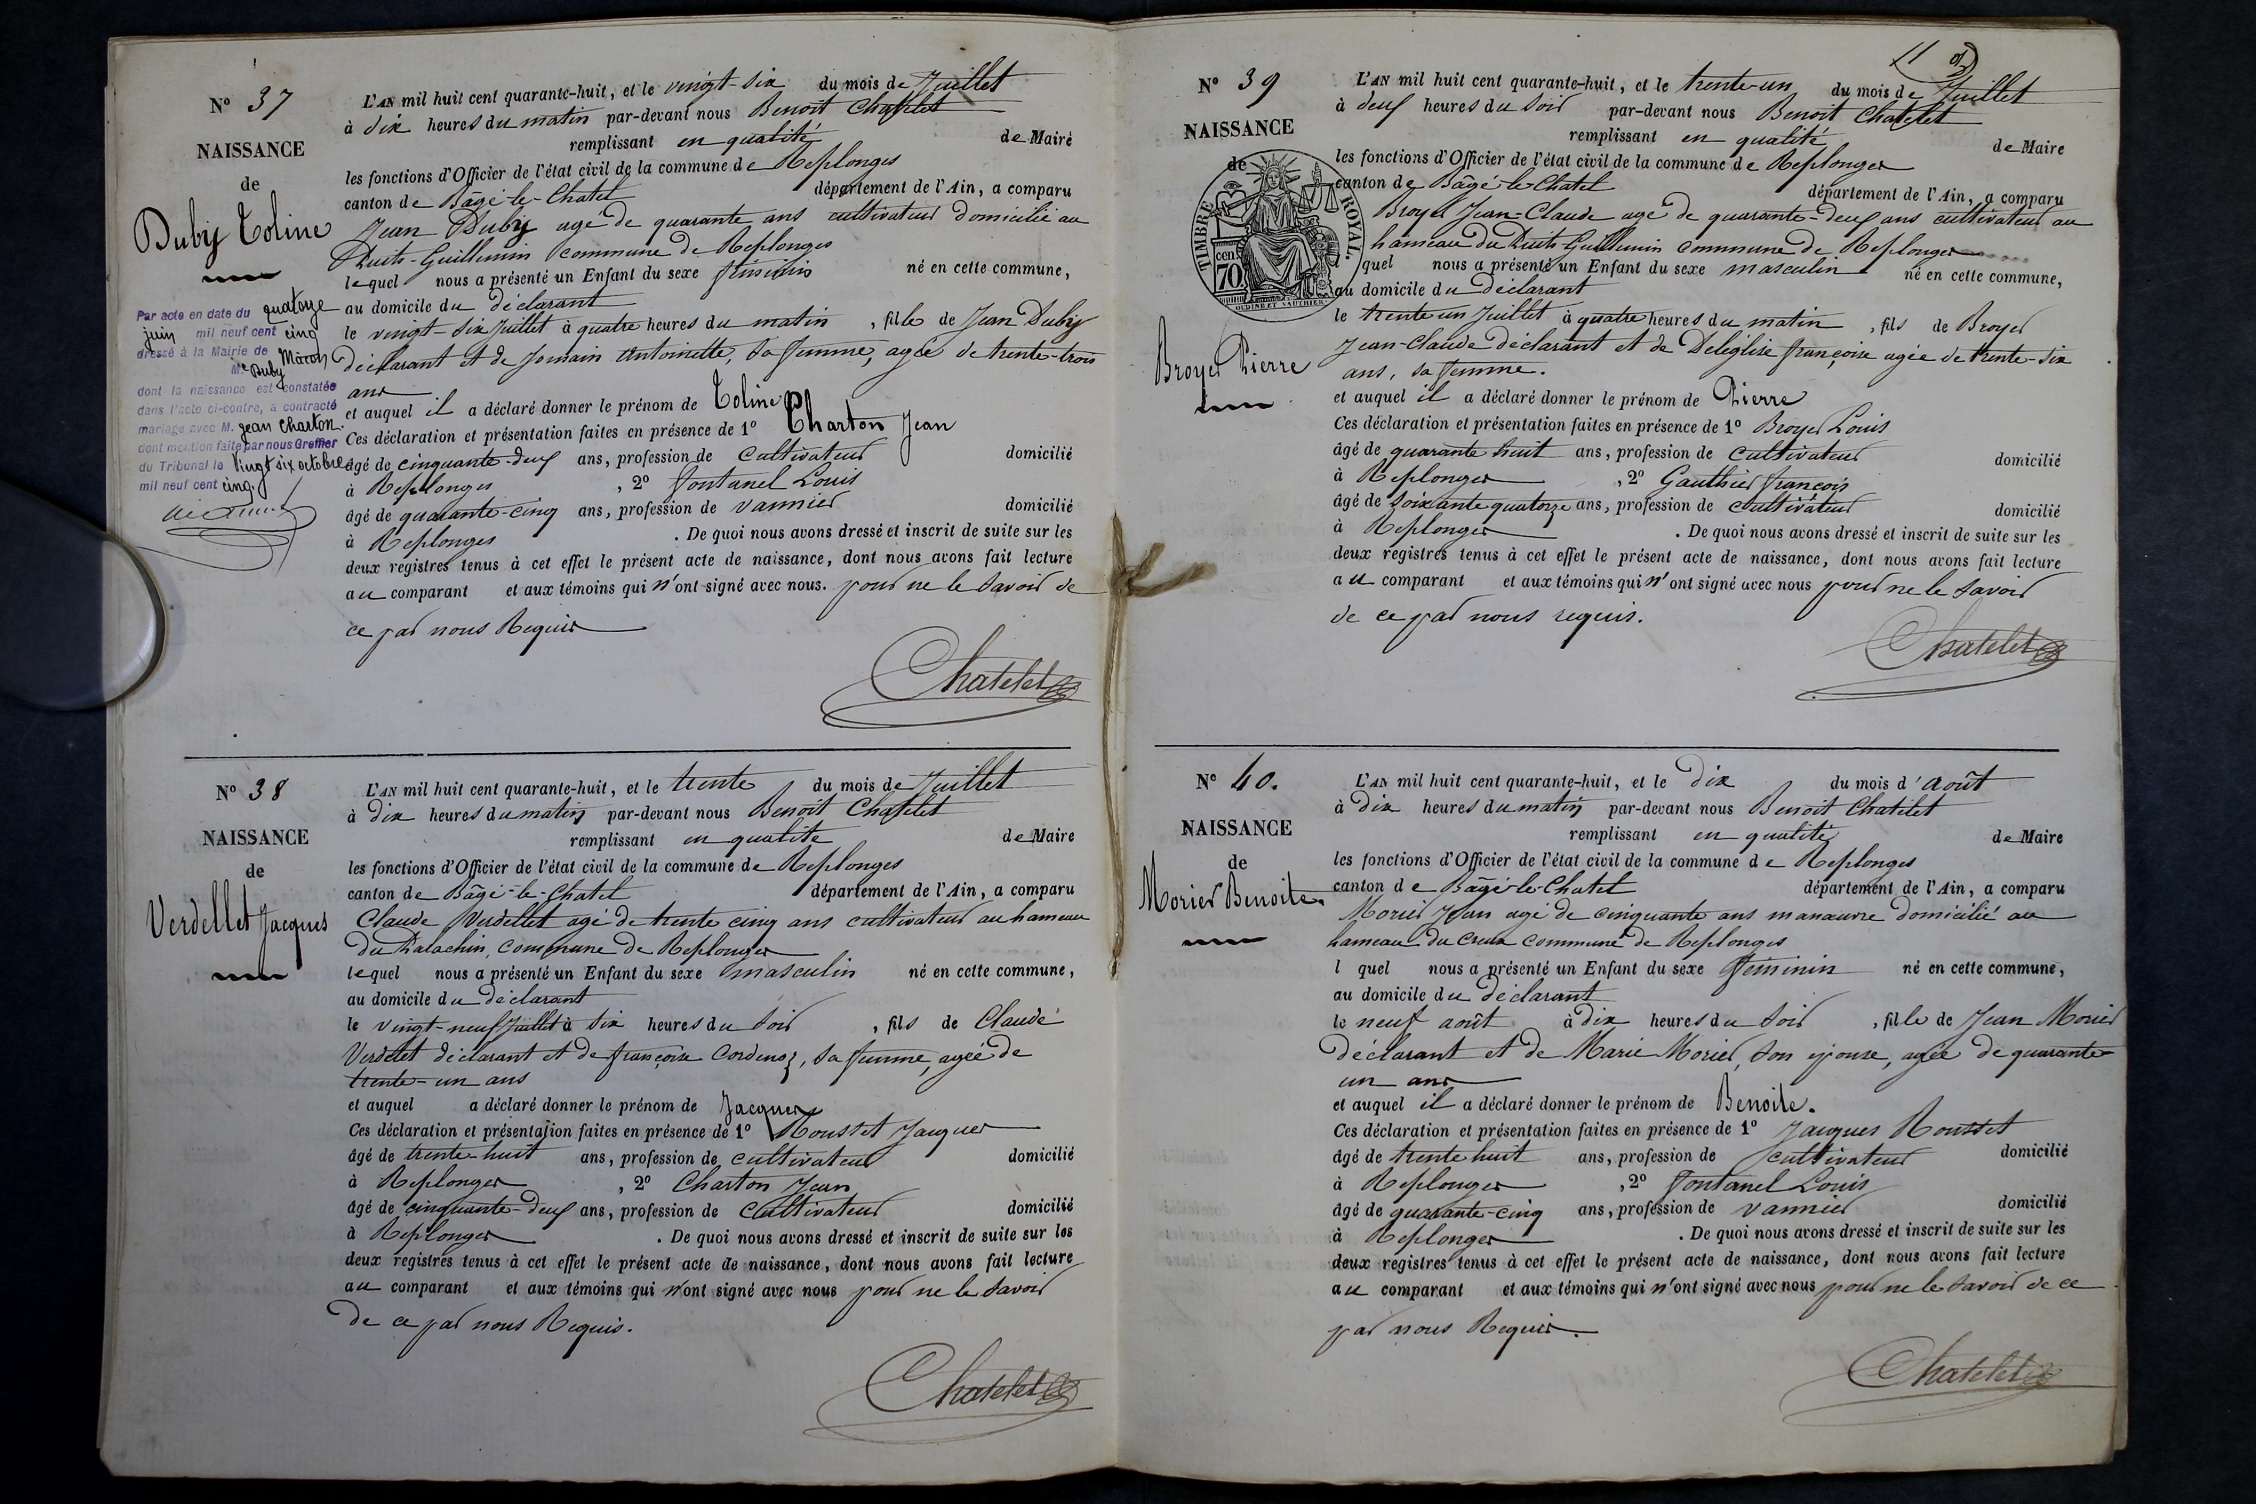 N° 37
NAISSANCE
de
Duby Toline
Par acte en date du quatorze
juin mil neuf cent cinq
dressé à la Mairie de Mâcon
Mlle Duby
dont la naissance est constatée
dans l'acte ci-contre, a contracté
mariage avec M. Jean Charton.
dont mention faite par nous Greffier
du Tribunal le Vingt six octobre
mil neuf cent cinq.
L'AN mil huit cent quarante-huit, et le vingt-six du mois de Juillet
à dix heures du matin par-devant nous Benoit Chatelet
remplissant en qualité de Maire
les fonctions d'Officier de l'état civil de la commune de Replonges
canton de Bâgé-le-Chatel département de l'Ain, a comparu
Jean Duby agé de quarante ans cultivateur domicilié au
Puits-Guillemin commune de Replonges
lequel nous a présenté un Enfant du sexe féminin né en cette commune,
au domicile du déclarant
le vingt-six Juillet à quatre heures du matin, fille de Jean Duby
déclarant et de Jomain Antoinette, sa femme, agée de trente-trois
ans
et auquel il a déclaré donner le prénom de Toline
Ces déclaration et présentation faites en présence de 1° Charton Jean
âgé de cinquante-deux ans, profession de cultivateur domicilié
à Replonges, 2° Fontanel Louis
âgé de quarante-cinq ans, profession de vannier domicilié
à Replonges. De quoi nous avons dressé et inscrit de suite sur les
deux registres tenus à cet effet le présent acte de naissance, dont nous avons fait lecture
au comparant et aux témoins qui n'ont signé avec nous. pour ne le savoir de
ce par nous Requis
Chatelet
N° 38
NAISSANCE
de
Verdellet Jacques
L'AN mil huit cent quarante-huit, et le trente du mois de Juillet
à Dix heures du matin par-devant nous Benoit Chatelet
remplissant en qualité de Maire
les fonctions d'Officier de l'état civil de la commune de Replonges
canton de Bâgé-le-Chatel département de l'Ain, a comparu
Claude Verdellet agé de trente cinq ans cultivateur au hameau
du Palachin, commune de Replonges
lequel nous a présenté un Enfant du sexe masculin né en cette commune,
au domicile du déclarant
le vingt-neuf Juillet à six heures du soir, fils de Claude
Verdelet déclarant et de françoise Cordenoz, sa femme, agée de
trente-un ans
et auquel a déclaré donner le prénom de Jacques
Ces déclaration et présentation faites en présence de 1° Rousset Jacques
âgé de trente-huit ans, profession de cultivateur domicilié
à Replonges, 2° Charton Jean
âgé de cinquante-deux ans, profession de Cultivateur domicilié
à Replonges. De quoi nous avons dressé et inscrit de suite sur les
deux registres tenus à cet effet le présent acte de naissance, dont nous avons fait lecture
au comparant et aux témoins qui n'ont signé avec nous pour ne le savoir
De ce par nous Requis.
Chatelet
11
N° 39
NAISSANCE
de
TIMBRE ROYAL.
cen. 70
OUDINÉ ET VAUTHIER
Broyer Pierre
L'AN mil huit cent quarante-huit, et le trente-un du mois de Juillet
à deux heures du soir par-devant nous Benoit Chatelet
remplissant en qualité de Maire
les fonctions d'Officier de l'état civil de la commune de Replonges
canton de Bâgé-le-Chatel département de l'Ain, a comparu
Broyer Jean-Claude agé de quarante-deux ans cultivateur au
hameau du Puits Guillemin commune de Replonges
quel nous a présenté un Enfant du sexe masculin né en cette commune,
au domicile du déclarant
le trente un Juillet à quatre heures du matin, fils de Broyer
Jean-Claude déclarant et de Deléglise françoise agée de trente-six
ans, sa femme.
et auquel il a déclaré donner le prénom de Pierre
Ces déclaration et présentation faites en présence de 1° Broyer Louis
âgé de quarante huit ans, profession de cultivateur domicilié
à Replonges, 2° Gauthier françois
âgé de soixante quatorze ans, profession de cultivateur domicilié
à Replonges. De quoi nous avons dressé et inscrit de suite sur les
deux registres tenus à cet effet le présent acte de naissance, dont nous avons fait lecture
au comparant et aux témoins qui n'ont signé avec nous pour ne le savoir
de ce par nous requis.
Chatelet
N° 40.
NAISSANCE
de
Morier Benoite.
L'AN mil huit cent quarante-huit, et le dix du mois d'août
à dix heures du matin par-devant nous Benoit Chatelet
remplissant en qualité de Maire
les fonctions d'Officier de l'état civil de la commune de Replonges
canton de Bâgé-le-Chatel département de l'Ain, a comparu
Morier Jean agé de cinquante ans manœuvre domicilié au
hameau du creux commune de Replonges
l quel nous a présenté un Enfant du sexe féminin né en cette commune,
au domicile du déclarant
le neuf août à dix heures du soir, fille de Jean Morier
déclarant et de Marie Morier, son épouse, agée de quarante-
un ans
et auquel il a déclaré donner le prénom de Benoite.
Ces déclaration et présentation faites en présence de 1° Jacques Rousset
âgé de trente huit ans, profession de cultivateur domicilié
à Replonges, 2° Fontanel Louis
âgé de quarante-cinq ans, profession de vannier domicilié
à Replonges. De quoi nous avons dressé et inscrit de suite sur les
deux registres tenus à cet effet le présent acte de naissance, dont nous avons fait lecture
au comparant et aux témoins qui n'ont signé avec nous pour ne le savoir de ce
par nous Requis.
Chatelet